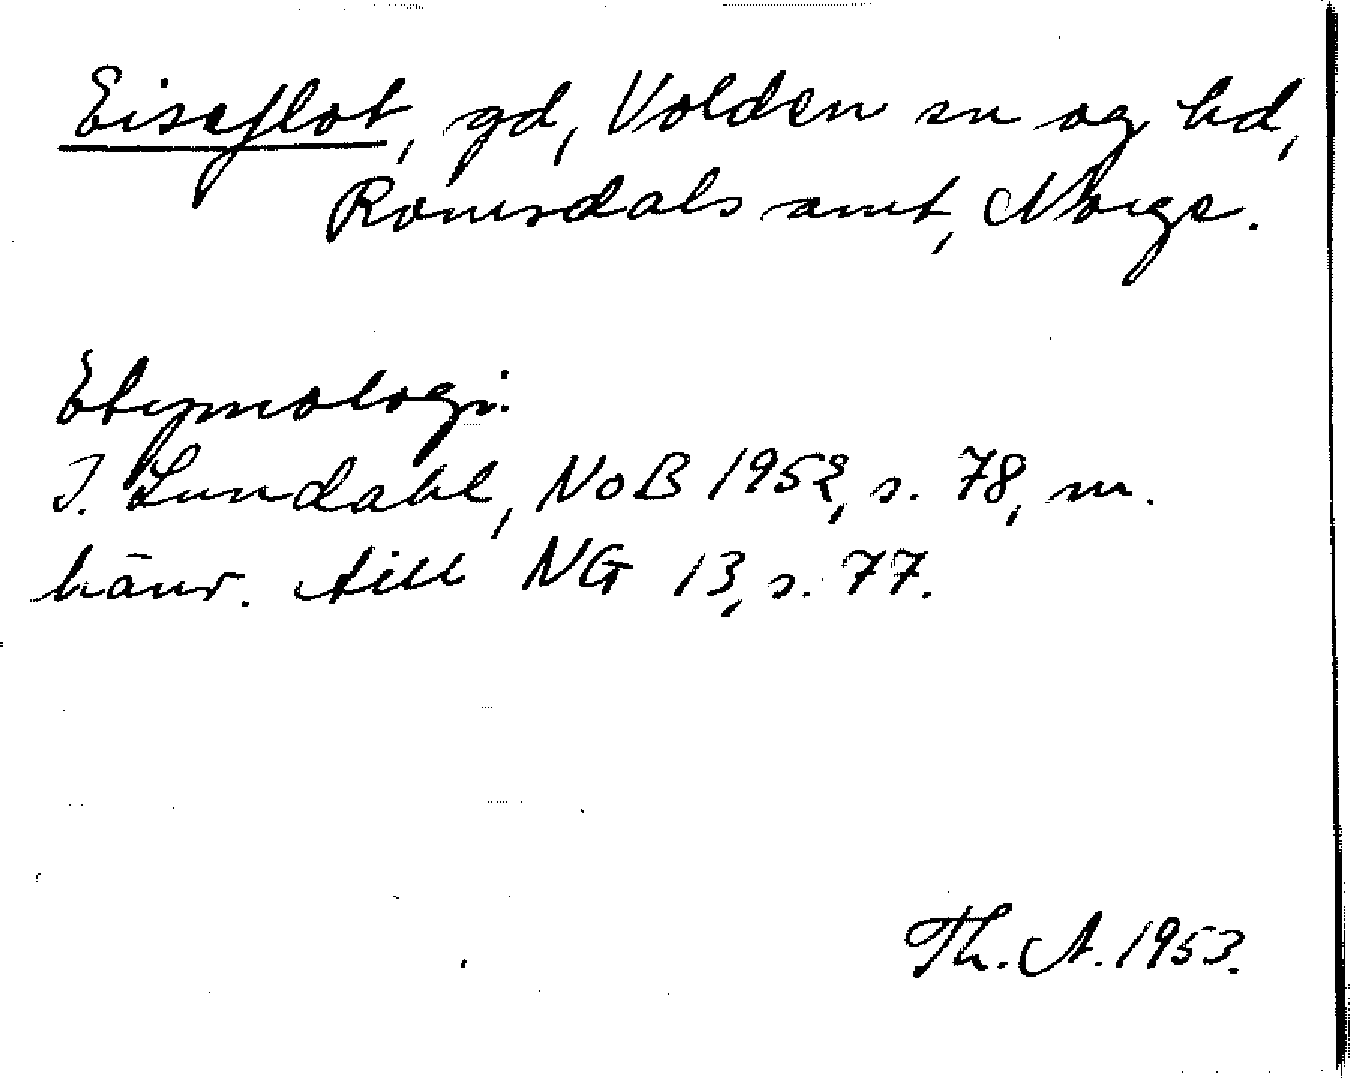 Eisaflot, gd, Volden sn og hd,
Romsdals amt, Norge.
Etymologi.
I. Lundahl, NoB 1952, s. 78, m.
hänv. till NG 13, s. 77.
Th. A. 1953.